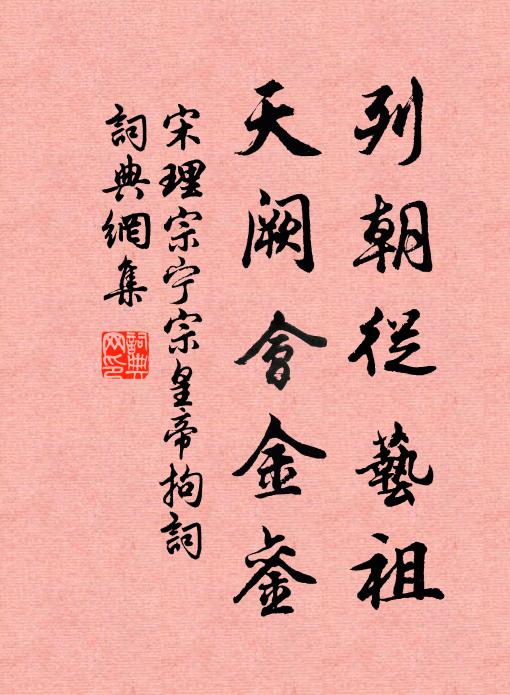 列朝從藝祖
天闕會金銮
宋理宗宁宗皇帝拘詞
詞典網集
詞典
网印